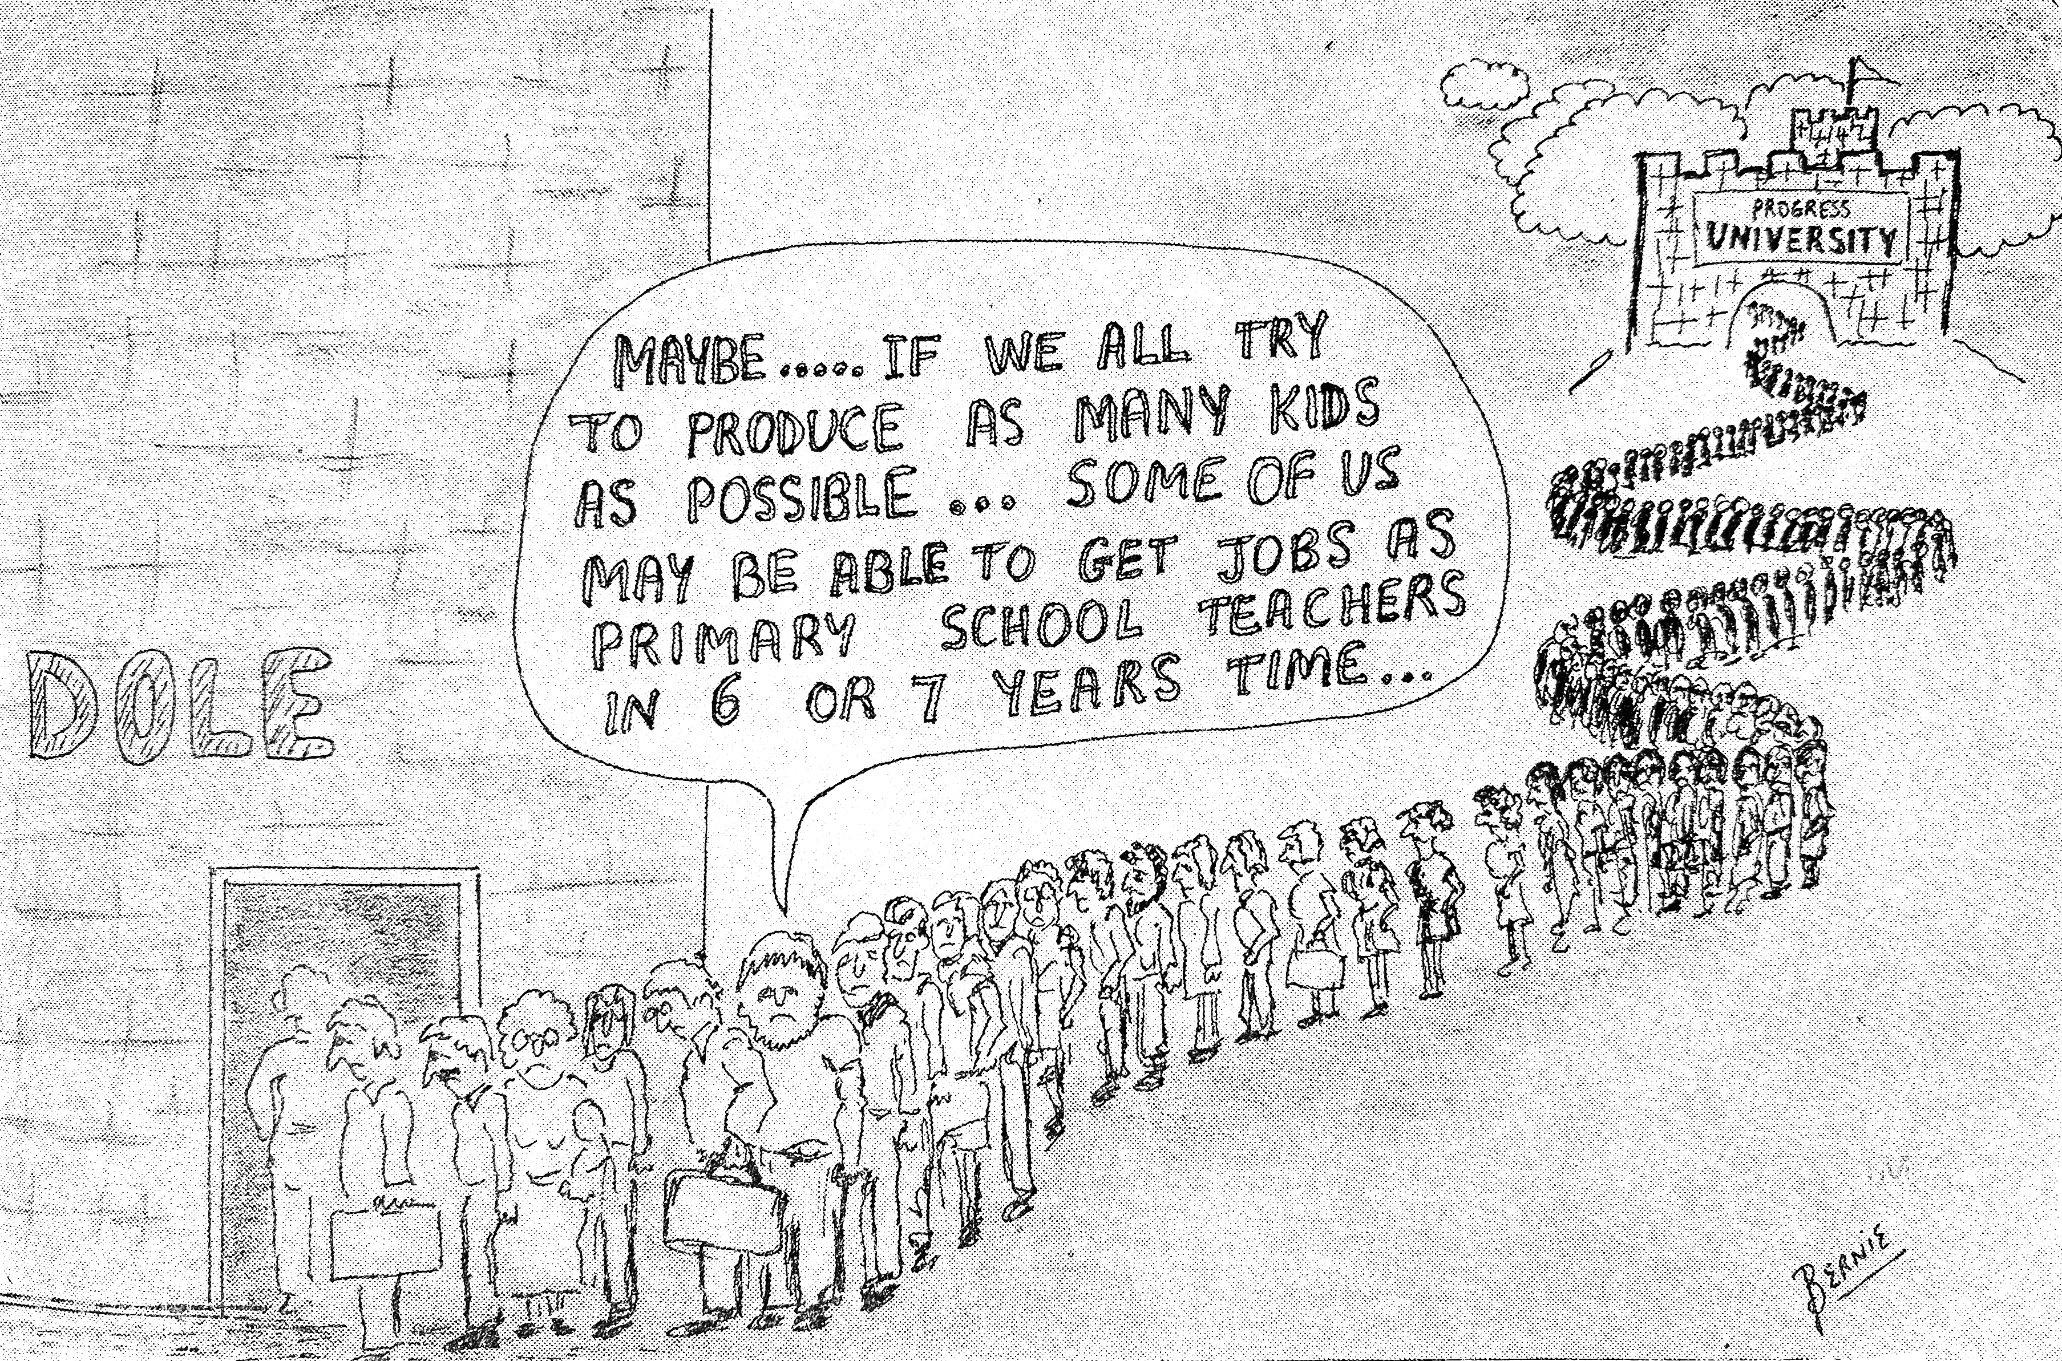 PROGRESS
UNIVERSITY
MAYBE..... IF WE ALL TRY
TO PRODUCE AS MANY KIDS
AS POSSIBLE ... SOME OF US
MAY BE ABLE TO GET JOBS AS
PRIMARY SCHOOL TEACHERS
IN 6 OR 7 YEARS TIME...
DOLE
BERNIE